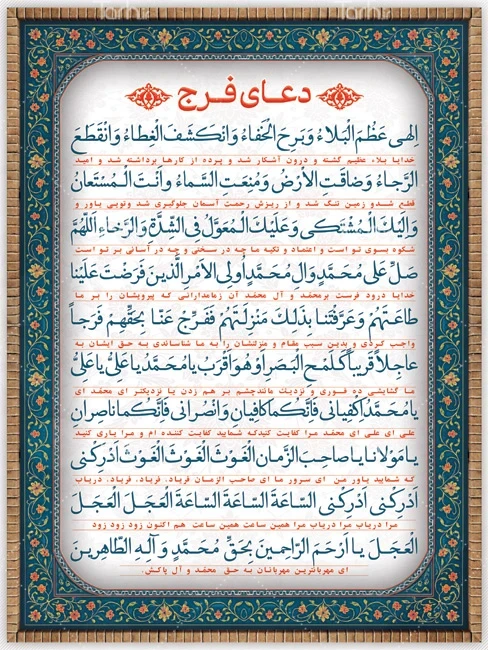 دعای فرج
اِلهی عَظُمَ الْبَلاءُ وَبَرِحَ الْخَفاءُ وَانْکَشَفَ الْغِطاءُ وَانْقَطَعَ
خدایا بلاء عظیم گشته و درون آشکار شد و پرده از کارها برداشته شد و امید
الرَّجاءُ وَضاقَتِ الْاَرْضُ وَمُنِعَتِ السَّماءُ وَاَنْتَ الْمُسْتَعانُ
قطع شد و زمین تنگ شد و از ریزش رحمت آسمان جلوگیری شد وتویی یاور و
وَاِلَیْکَ الْمُشْتَکی وَعَلَیْکَ الْمُعَوَّلُ فِی الشِّدَّةِ وَالرَّخاءِ اَللّهُمَّ
شکوه بسوی تو است و اعتماد و تکیه ما چه در سختی و چه در آسانی بر تو است
صَلِّ عَلی مُحَمَّدٍ وَالِ مُحَمَّدٍ اُولِی الْاَمْرِ الَّذینَ فَرَضْتَ عَلَیْنا
خدایا درود فرست برمحمد و آل محمد آن زمامدارانی که پیرویشان را بر ما
طاعَتَهُمْ وَعَرَّفْتَنا بِذلِکَ مَنْزِلَتَهُمْ فَفَرِّجْ عَنّا بِحَقِّهِمْ فَرَجاً
واجب کردی و بدین سبب مقام و منزلتشان را به ما شناساندی به حق ایشان به
عاجِلاً قَریباً کَلَمْحِ الْبَصَرِ اَوْ هُوَ اَقْرَبُ یا مُحَمَّدُ یا عَلِیُّ یا عَلِیُّ
ما گشایشی ده فوری و نزدیک مانندچشم بر هم زدن یا نزدیکتر ای محمد ای
یا مُحَمَّدُ اِکْفِیانی فَاِنَّکُما کافِیانِ وَانْصُرانی فَاِنَّکُما ناصِرانِ
علی ای علی ای محمد مرا کفایت کنیدکه شمایید کفایت کننده ام و مرا یاری کنید
یا مَوْلانا یا صاحِبَ الزَّمانِ الْغَوْثَ الْغَوْثَ الْغَوْثَ اَدْرِکْنی
که شمایید یاور من ای سرور ما ای صاحب الزمان فریاد، فریاد، فریاد، دریاب
اَدْرِکْنی اَدْرِکْنی السّاعَةَ السّاعَةَ السّاعَةَ الْعَجَلَ الْعَجَلَ
مرا دریاب مرا دریاب مرا همین ساعت همین ساعت هم اکنون زود زود زود
الْعَجَلَ یا اَرْحَمَ الرّاحِمینَ بِحَقِّ مُحَمَّدٍ وَآلِهِ الطّاهِرینَ
ای مهربانترین مهربانان به حق محمد و آل پاکش.